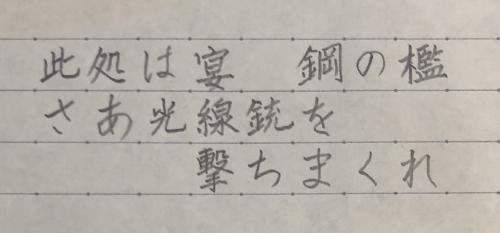 此処は宴　鋼の檻
さあ光線銃を
撃ちまくれ